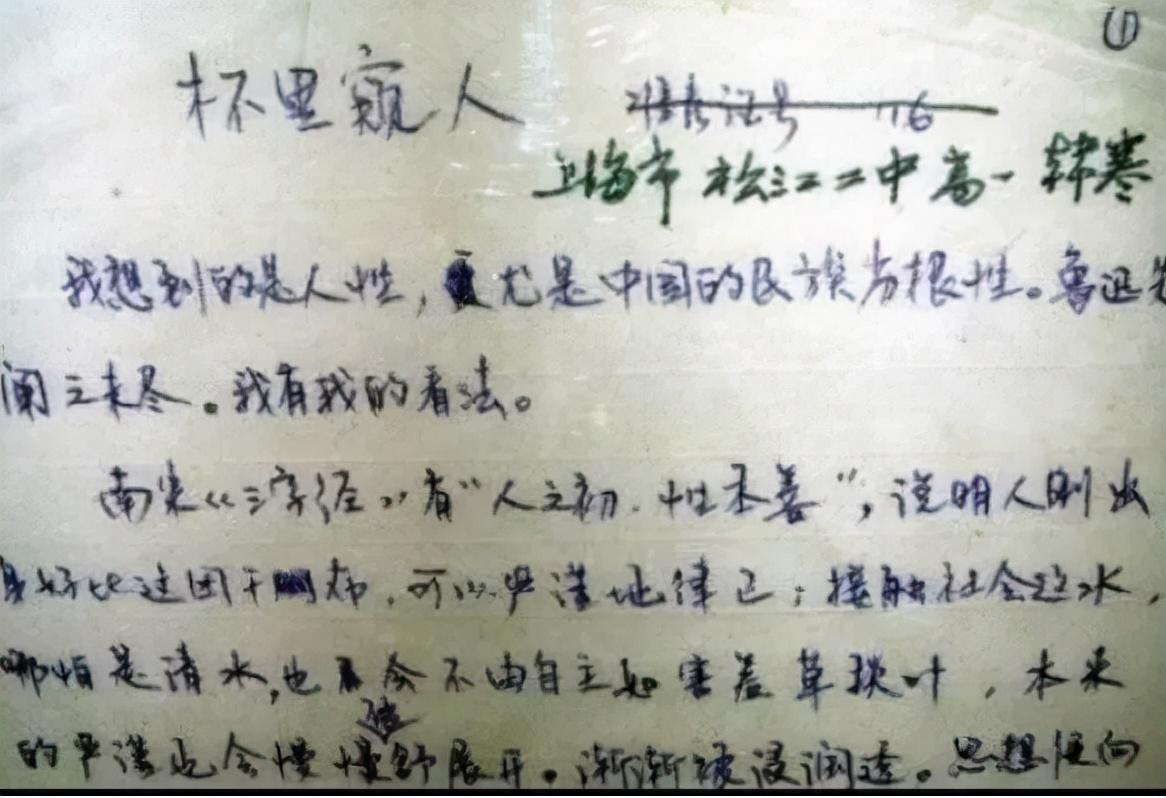 ①
杯里窥人
准考证号 116
上海市 松江二中 高一 韩寒
我想到的是人性,尤是中国的民族劣根性。鲁迅先
阐之未尽。我有我的看法。
南宋《三字经》有“人之初,性本善”,说明人刚出
身好比这团干布,可以严谨地律己;接触社会这水,
哪怕是清水,也会不由自主如害羞草叶,本来
的严谨也会慢慢舒展开。渐渐被浸润透。思想便向